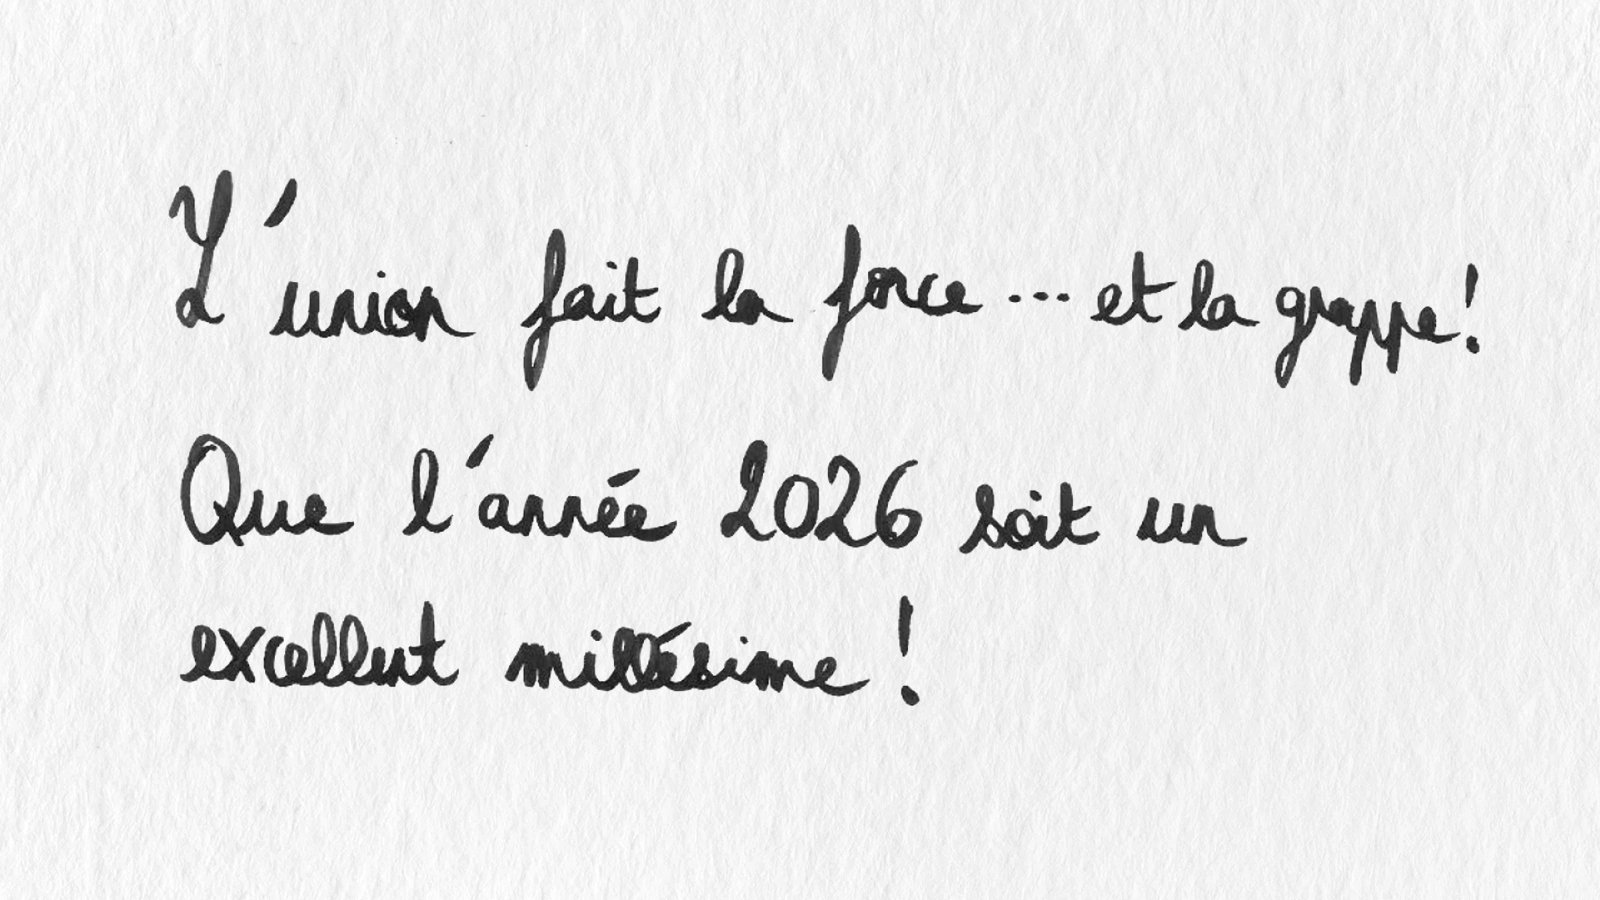 L'union fait la force... et la grappe!
Que l'année 2026 soit un
excellent millésime !